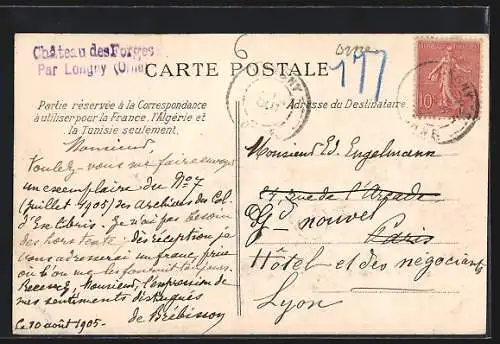 Château des Forges
Par Longny (Orne)
6
Orne
177
CARTE POSTALE
10
Partie réservée à la Correspondance
à utiliser pour la France, l'Algérie et
la Tunisie seulement.
Adresse du Destinataire
Monsieur,
Voulez-vous me faire envoyer
un exemplaire du No 7
(Juillet 1905) des Archives des Col.
d'Ex Libris. Je n'ai pas besoin
des hors texte. dès réception je
vous adresserai un franc, prix
où l'on me les fournit toujours.
Recevez, Monsieur, l'expression de
mes sentiments distingués
de Brébisson
Ce 10 août 1905.
Monsieur Ed. Engelmann
rue de l'Arcade
Paris
nouvel
Hôtel et des négociants
Lyon